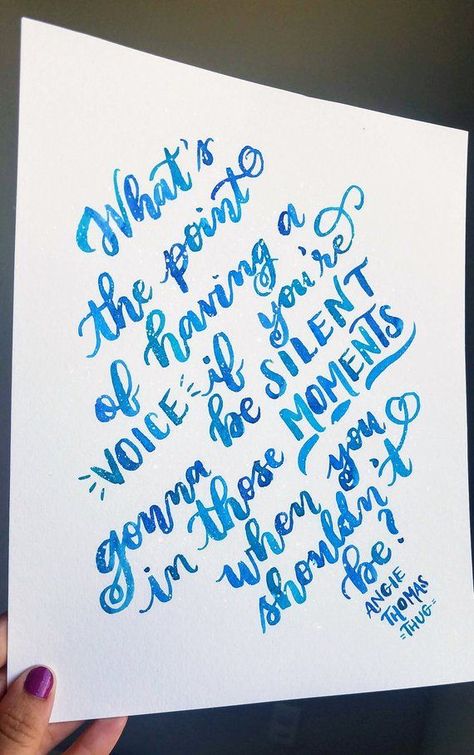 What's
the point
of having a
VOICE if you're
gonna be SILENT
in those MOMENTS
when you
shouldn't
be?
ANGIE
THOMAS
=THUG=